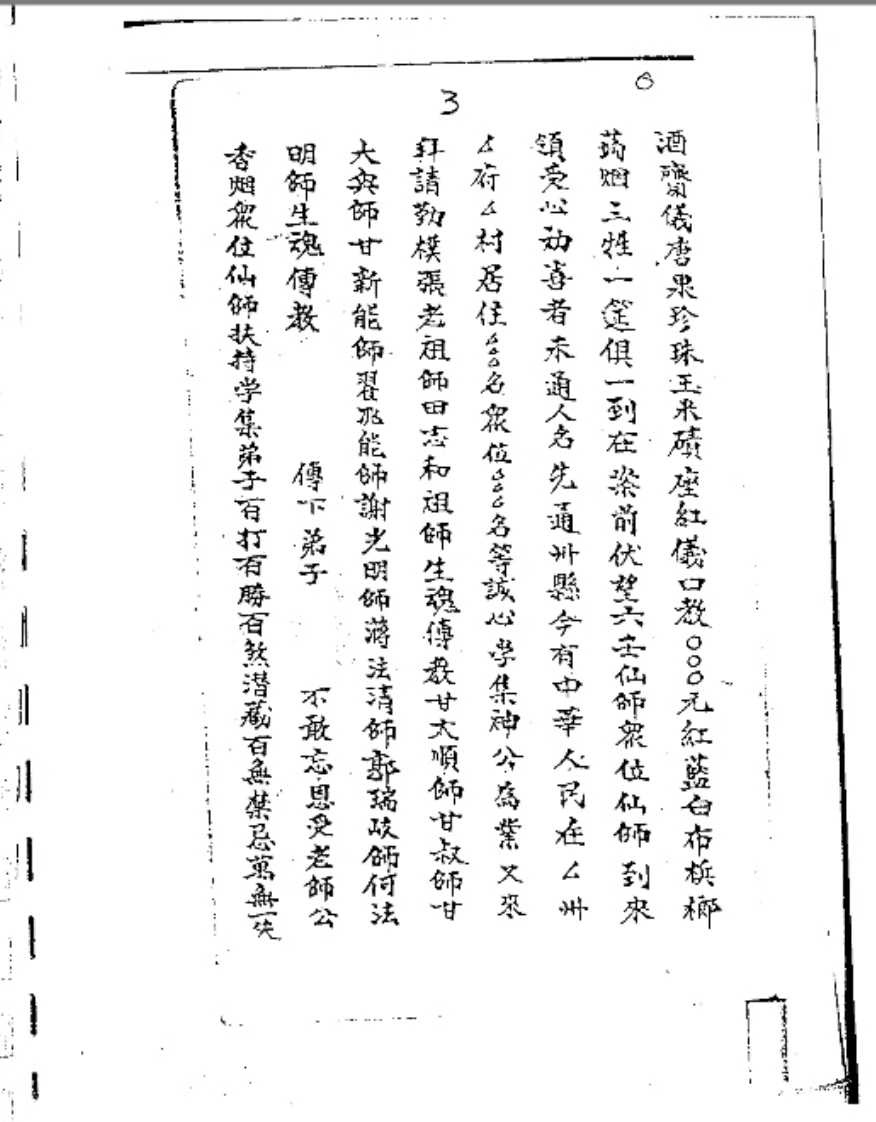 3
酒齋儀唐果珍珠玉米磧座紅儀口教〇〇〇元紅藍白布梹榔
蒟烟三牲一筵俱一到在案前伏望六壬仙師衆位仙師到來
領受心劝喜者未通人名先通州縣今有中華人民在厶州
厶府厶村居住〇〇名衆位〇〇〇名等誠心学集神公為業又來
拜請勤樸張老祖師田志和祖師生魂傳教甘大順師甘叔師甘
大興師甘新能師能師謝光明師蔣法清師郭瑞岐師何法
明師生魂傳教 傳下弟子 不敢忘恩受老師公
香烟衆位仙師扶持学集弟子百打百勝百煞潜藏百無禁忌萬無一失